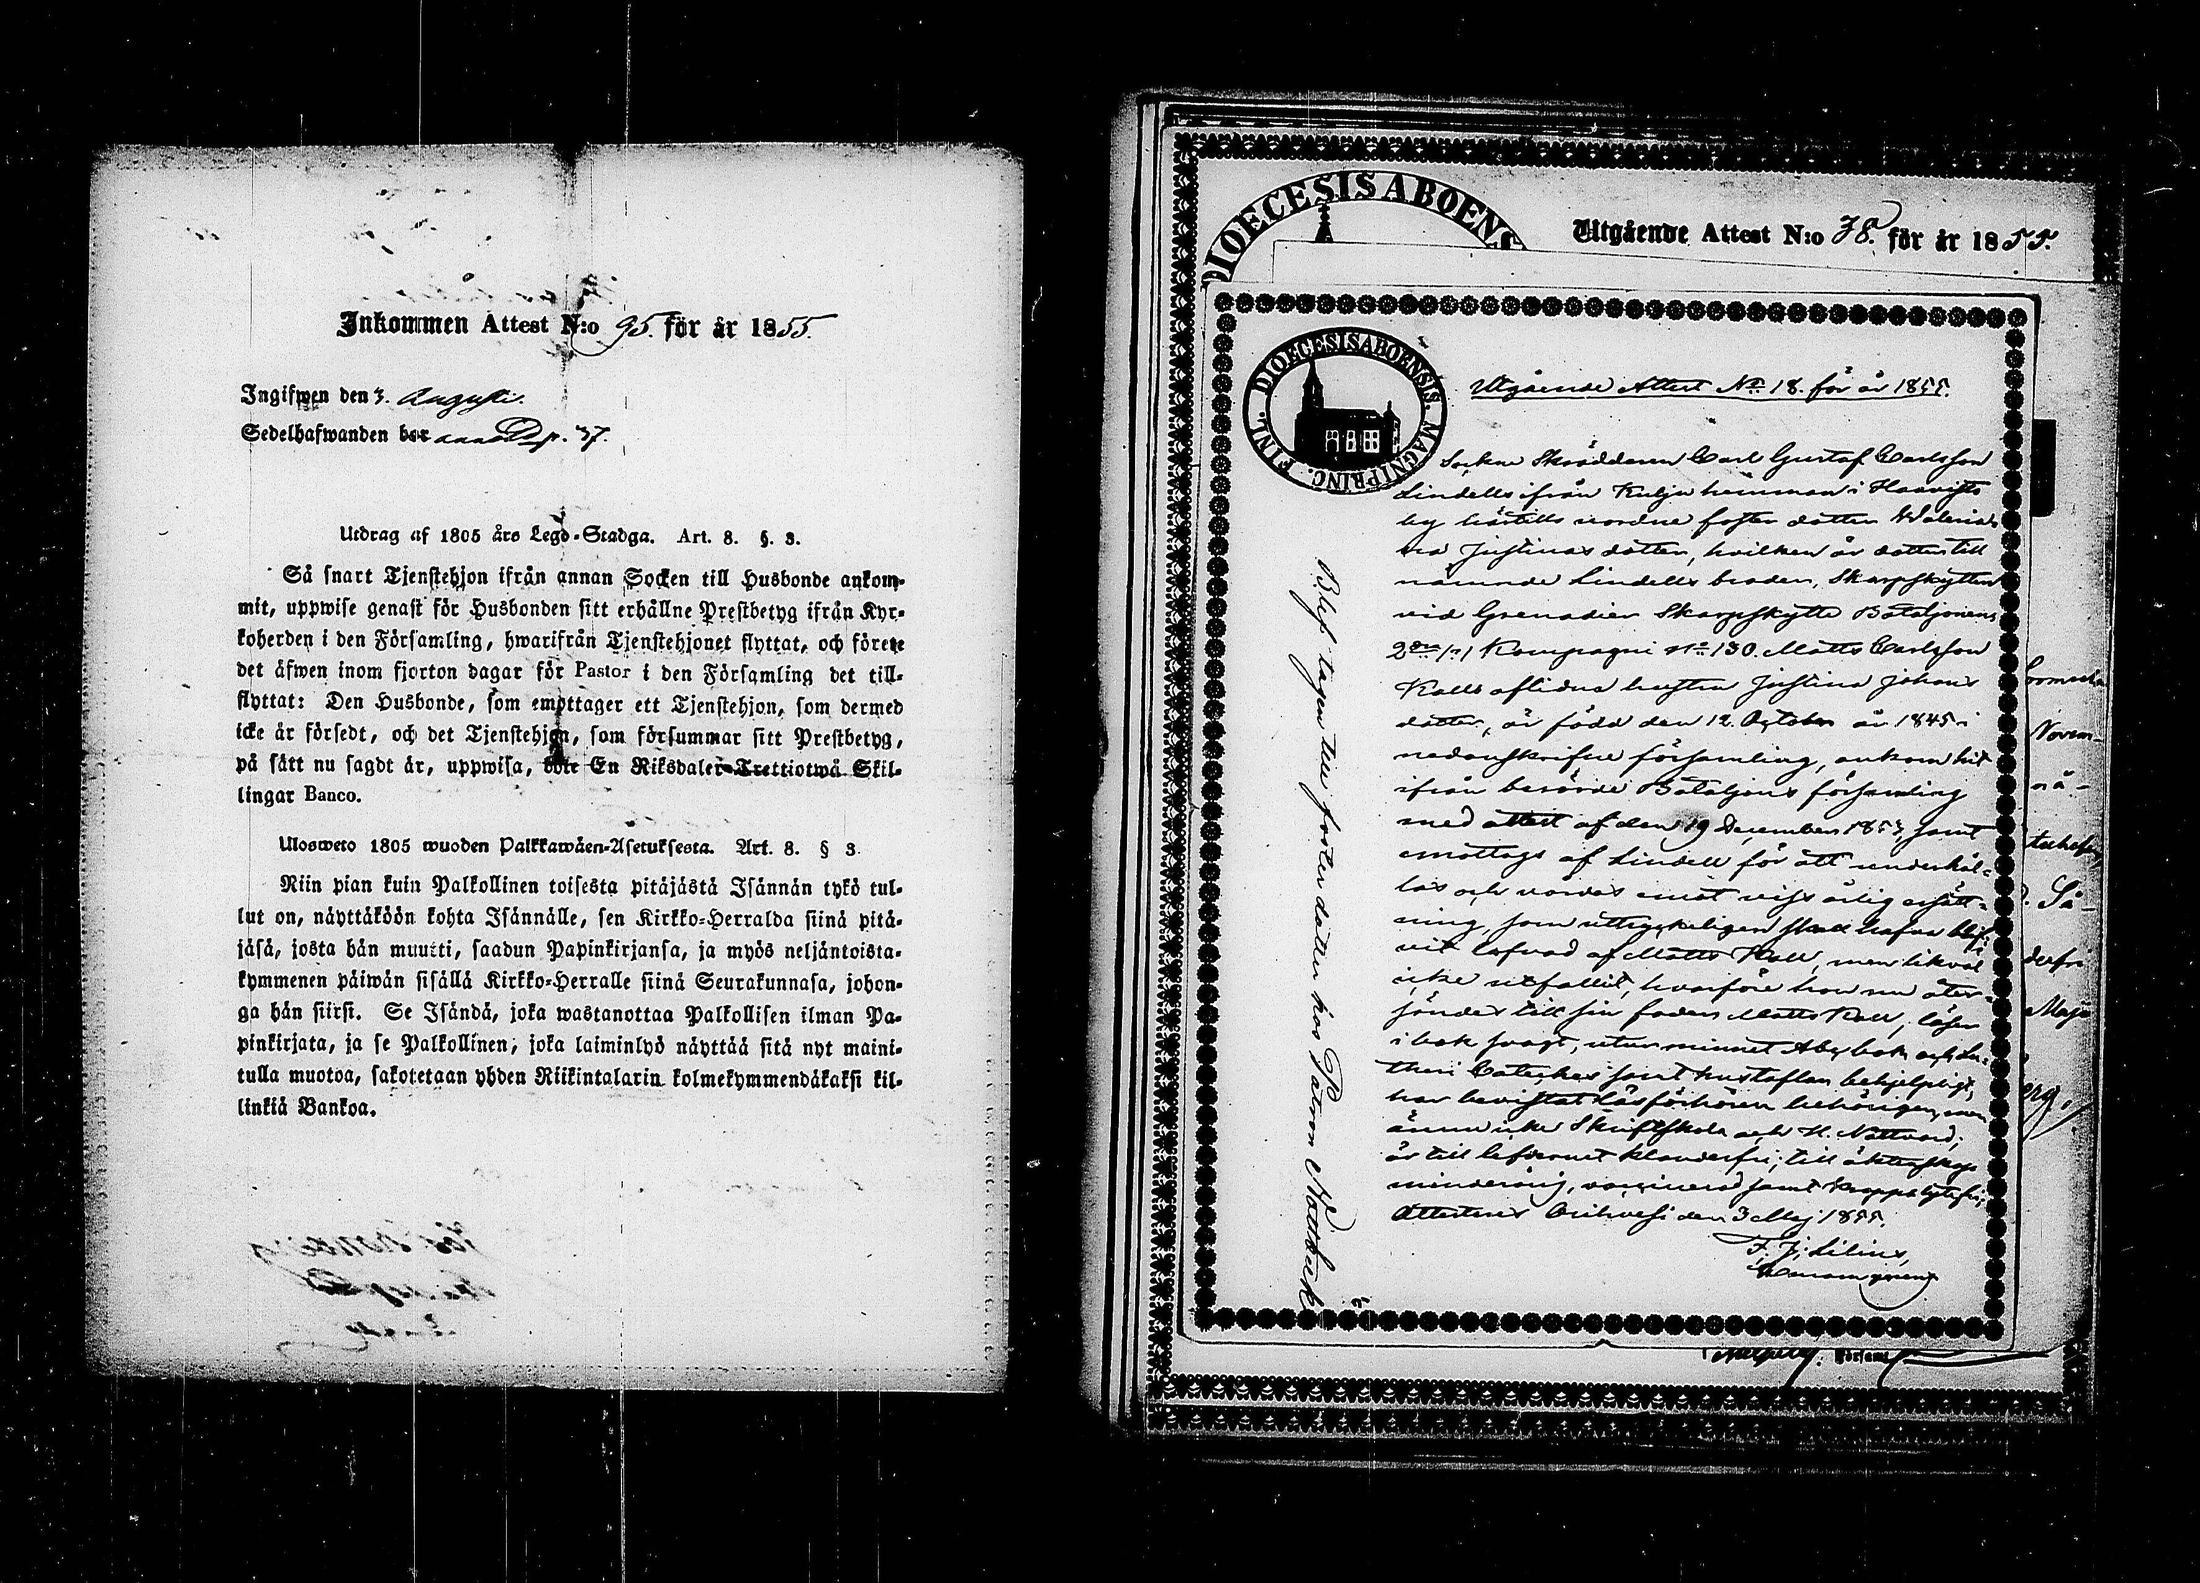 Inkommen Attest N:o 95. för år 1855.
Ingifwen den 3. Augusti.
Sedelhafwanden bor p. 37.
Utdrag af 1805 års Lego-Stadga. Art. 8. §. 3.
Så snart Tjenstehjon ifrån annan Socken till Husbonde ankom-
mit, uppwise genast för Husbonden sitt erhållne Prestbetyg ifrån Kyr-
koherden i den Församling, hwarifrån Tjenstehjonet flyttat, och förete
det äfwen inom fjorton dagar för Pastor i den Församling det till-
flyttat: Den Husbonde, som emottager ett Tjenstehjon, som dermed
icke är försedt, och det Tjenstehjon, som försummar sitt Prestbetyg,
på sätt nu sagdt är, uppwisa, böte En Riksdaler Trettiotwå Skil-
lingar Banco.
Ulosweto 1805 wuoden Palkkawäen-Asetuksesta. Art. 8. § 3.
Niin pian kuin Palkollinen toisesta pitäjästä Isännän tykö tul-
lut on, näyttäköön kohta Isännälle, sen Kirkko-Herralda siinä pitä-
jäsä, josta hän muutti, saadun Papinkirjansa, ja myös neljäntoista-
kymmenen päiwän sisällä Kirkko-Herralle siinä Seurakunnasa, johon-
ga hän siirsi. Se Isändä, joka wastanottaa Palkollisen ilman Pa-
pinkirjata, ja se Palkollinen, joka laiminlyö näyttää sitä nyt maini-
tulla muotoa, sakotetaan yhden Riikintalarin kolmekymmendäkaksi kil-
linkiä Bankoa.
DIOECESIS ABOENS
Utgående Attest N:o 38. för år 1855.
DIOECESIS ABOENSIS. MAGNI PRINC. FINL.
Utgående Attest No 18. för år 1855.
Sockne Skräddaren Carl Gustaf Carlsson
Lindells ifrån Kulju hemman i Haavisto
by härtills vordne foster dotter Waleria
na Justinas dotter, hvilken är dotter till
nämnde Lindells broder, Skarpskytten
vid Grenadier Skarpskytte Bataljonens
2dra Kompagni No 130. Matts Carlsson
Kalls aflidna hustru Justina Johans
dotter, är född den 12. October år 1845 i
nedanskrifne församling, ankom hit
ifrån berörde Bataljons församling
med attest af den 19 December 1853, samt
emottogs af Lindell för att underhål-
las och vårdas emot viss årlig ersätt-
ning, som uttryckeligen skall hafva blif-
vit lofvad af Matts Kall, men likväl
icke utfallit, hvarföre hon nu åter-
sändes till sin fader Matts Kall, läser
i bok svagt, utur minnet Abc bok och Lu-
theri Cateches samt hustaflan behjelpligt,
har bevistat Läsförhören behörigen, men
ännu icke Skriftskola och H. Nattvard;
är till lefvernet klanderfri; till äktenskap
minderårig, vaccinerad samt kroppslytesfri;
Attesteras Orihvesi den 3 Maj 1855.
F. J. Lilius,
Blef tagen till foster dotter hos Patron Nottbeck
Novem-
Så-
Maji